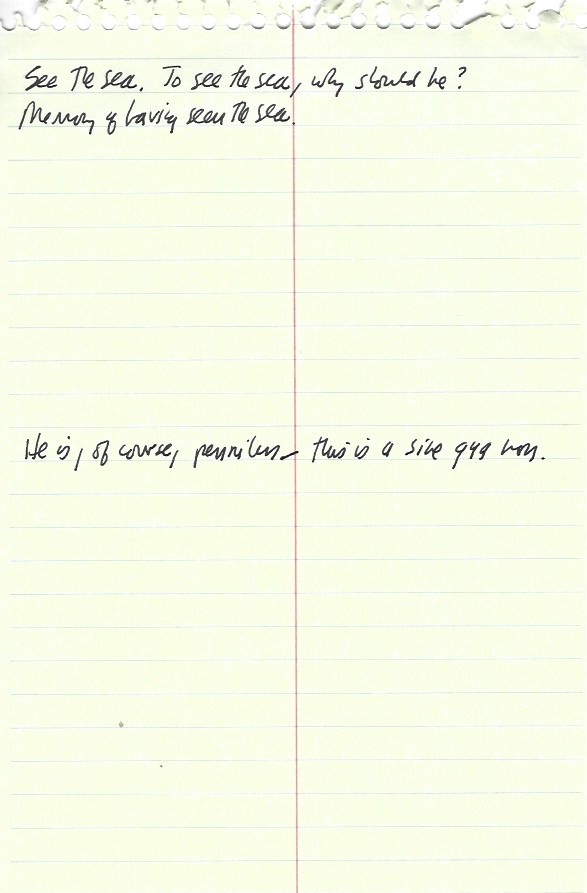 See the sea. To see the sea, why should he?
Memory of having seen the sea.
He is, of course, penniless — this is a sine qua non.